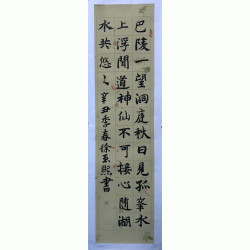 巴陵一望洞庭秋日見孤峯水
上浮聞道神仙不可接心隨湖
水共悠々辛丑季春徐玉熙書